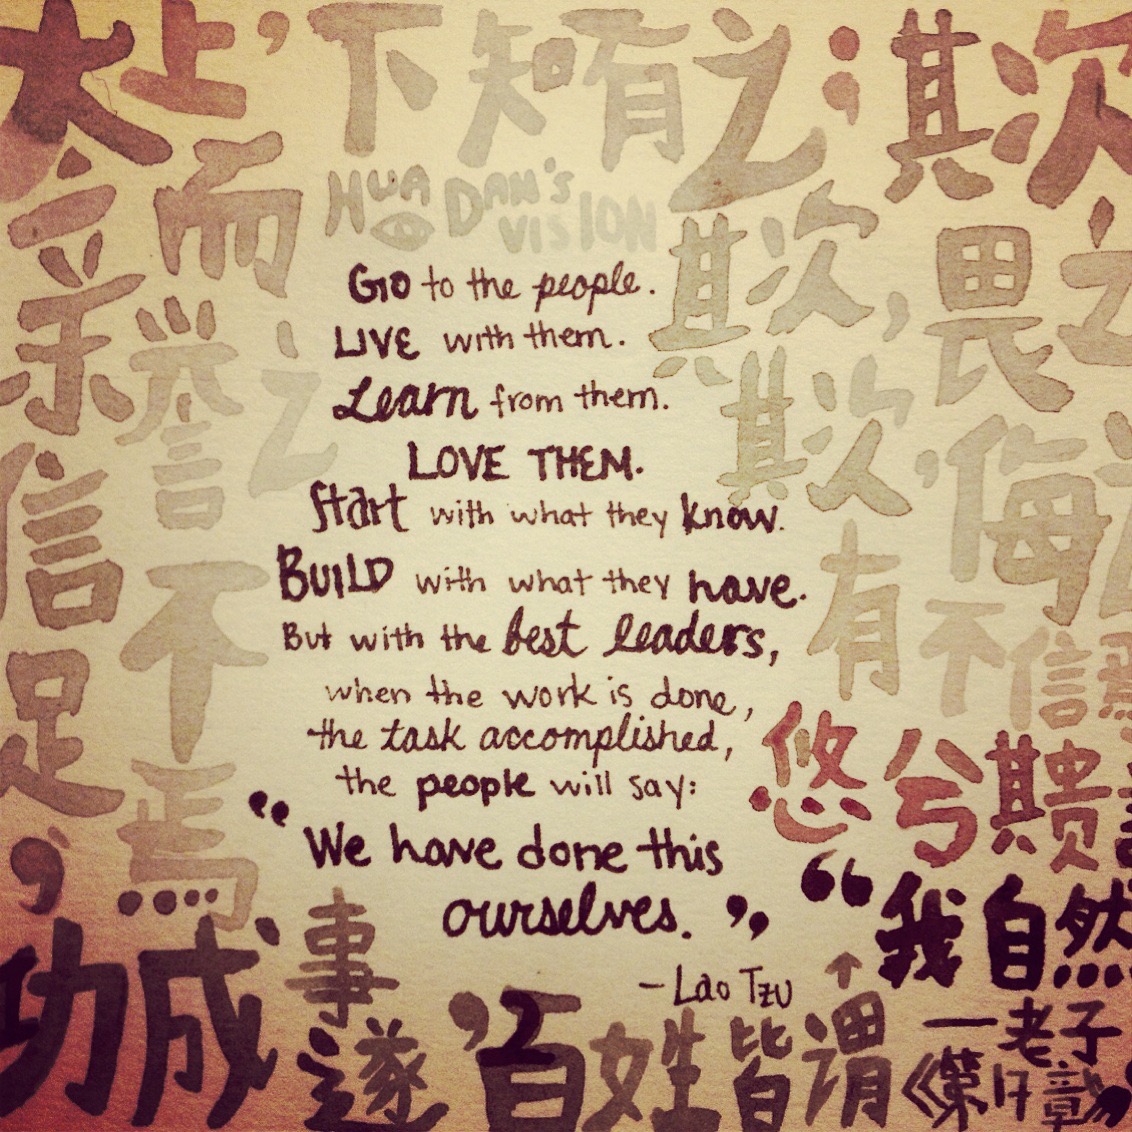 太上,下知有之;其次
亲而誉之
其次,畏之
其次,侮之
信不足,焉
有不信
悠兮其贵
HUA DAN'S VISION
Go to the people.
LIVE with them.
Learn from them.
LOVE THEM.
Start with what they know.
BUILD with what they have.
But with the best leaders,
when the work is done,
the task accomplished,
the people will say:
“We have done this
ourselves.”
-Lao Tzu
功成事遂,百姓皆谓
“我自然
—老子
《第17章》”